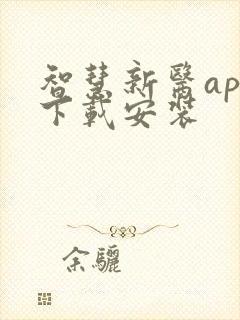 智慧新醫ap
下載安裝
余驪